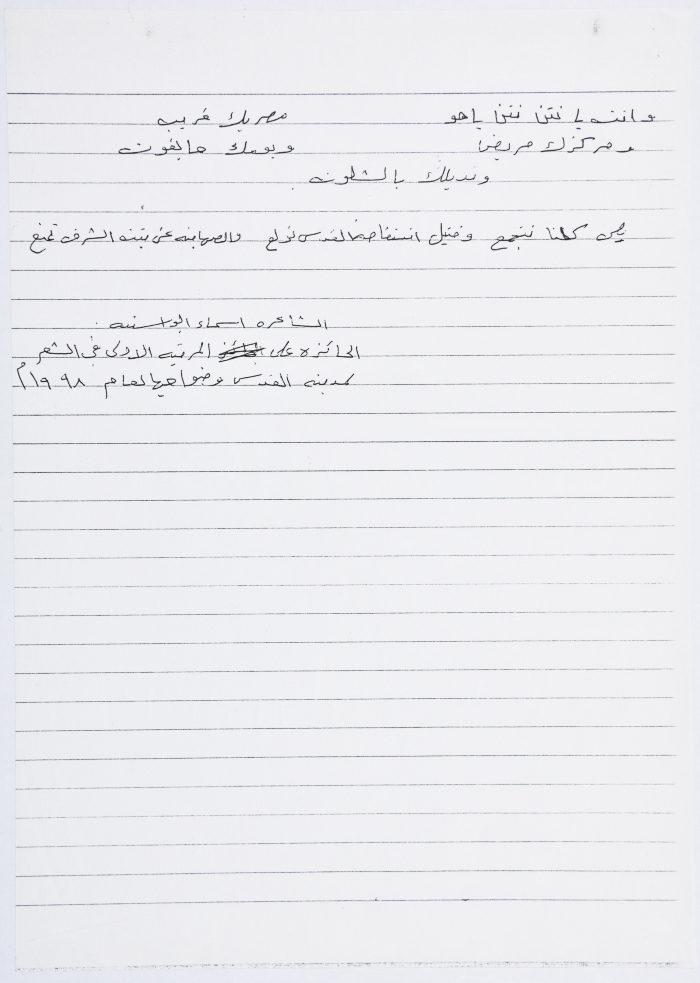 وانت يا نتن نتن ياهو مصريك غريب
ومركزك مريض ويومك هايفوت
ونديلك بالشلوت
كلنا نتجمع وفتيل انتفاضة القدس نولع والصهاينه عن الشرف تمنع
الشاعره اسماء
الحائزه على المرتبه الاولى في الشعر
لمدينه القدس وضواحيها لعام ١٩٩٨م